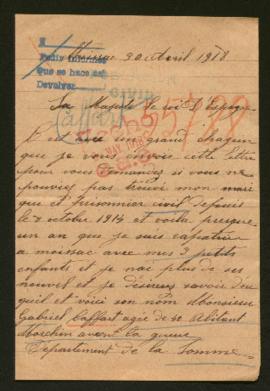 Moissac 30 Avril 1918
Que se hace
Devolver
CIVIL
Sa Majesté le roi D'Espagne
55788
C'est avec un grand chagrin
que je vous envoie cette lettre
pour vous demander si vous ne
pouviez pas trouver mon mari
qui est prisonnier civil depuis
le octobre 1914 et voila presque
un an que je suis rapatrier
a moissac avec mes 3 petits
enfants et je nai plus de ses
nouvel et je désirer savoir d'ou
quil est voici son nom Monsieur
Gabriel Caffart agée de Abitant
avant la guerre
Departement de la Somme